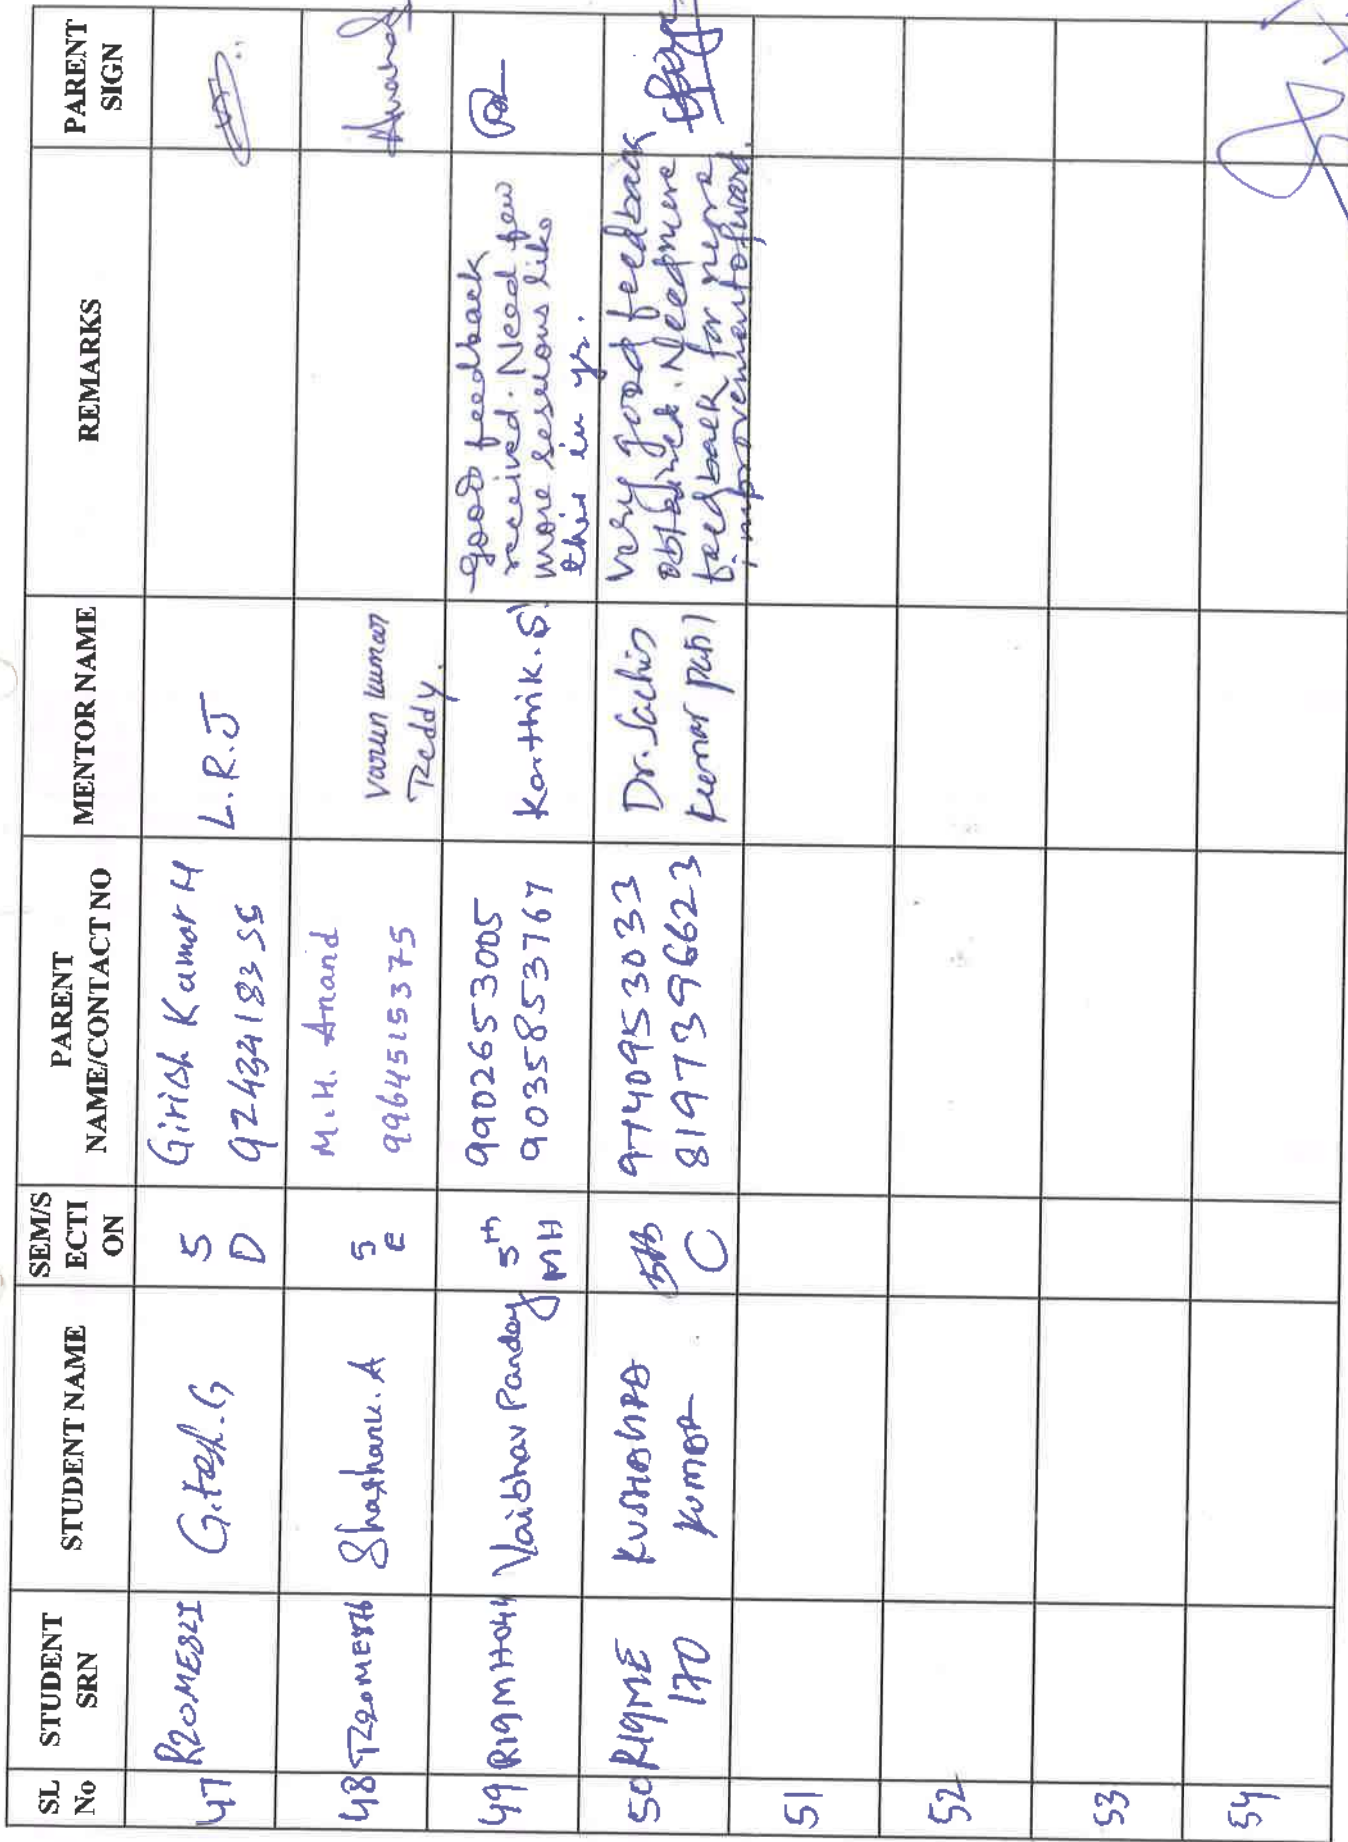 SL No
STUDENT SRN
STUDENT NAME
SEM/S ECTI ON
PARENT NAME/CONTACT NO
MENTOR NAME
REMARKS
PARENT SIGN
47
R20ME821
Gitesh.G
5
D
Girish Kumar H
L.R.J
48
Shashank.A
5
E
M.H. Anand
9964515375
Varun kumar
Reddy.
Anand
49
R19MH044
Vaibhav Pandey
5th
MH
9902653005
9035853767
Karthik.S
Good feedback
received. Need few
more sessions like
this in yr.
50
R19ME
170
Kumar
5th
C
9740953033
8197396623
Dr. Sachin
Kumar Patil
Very good feedback
obtained. Need more
feedback for more
improvement
51
52
53
54